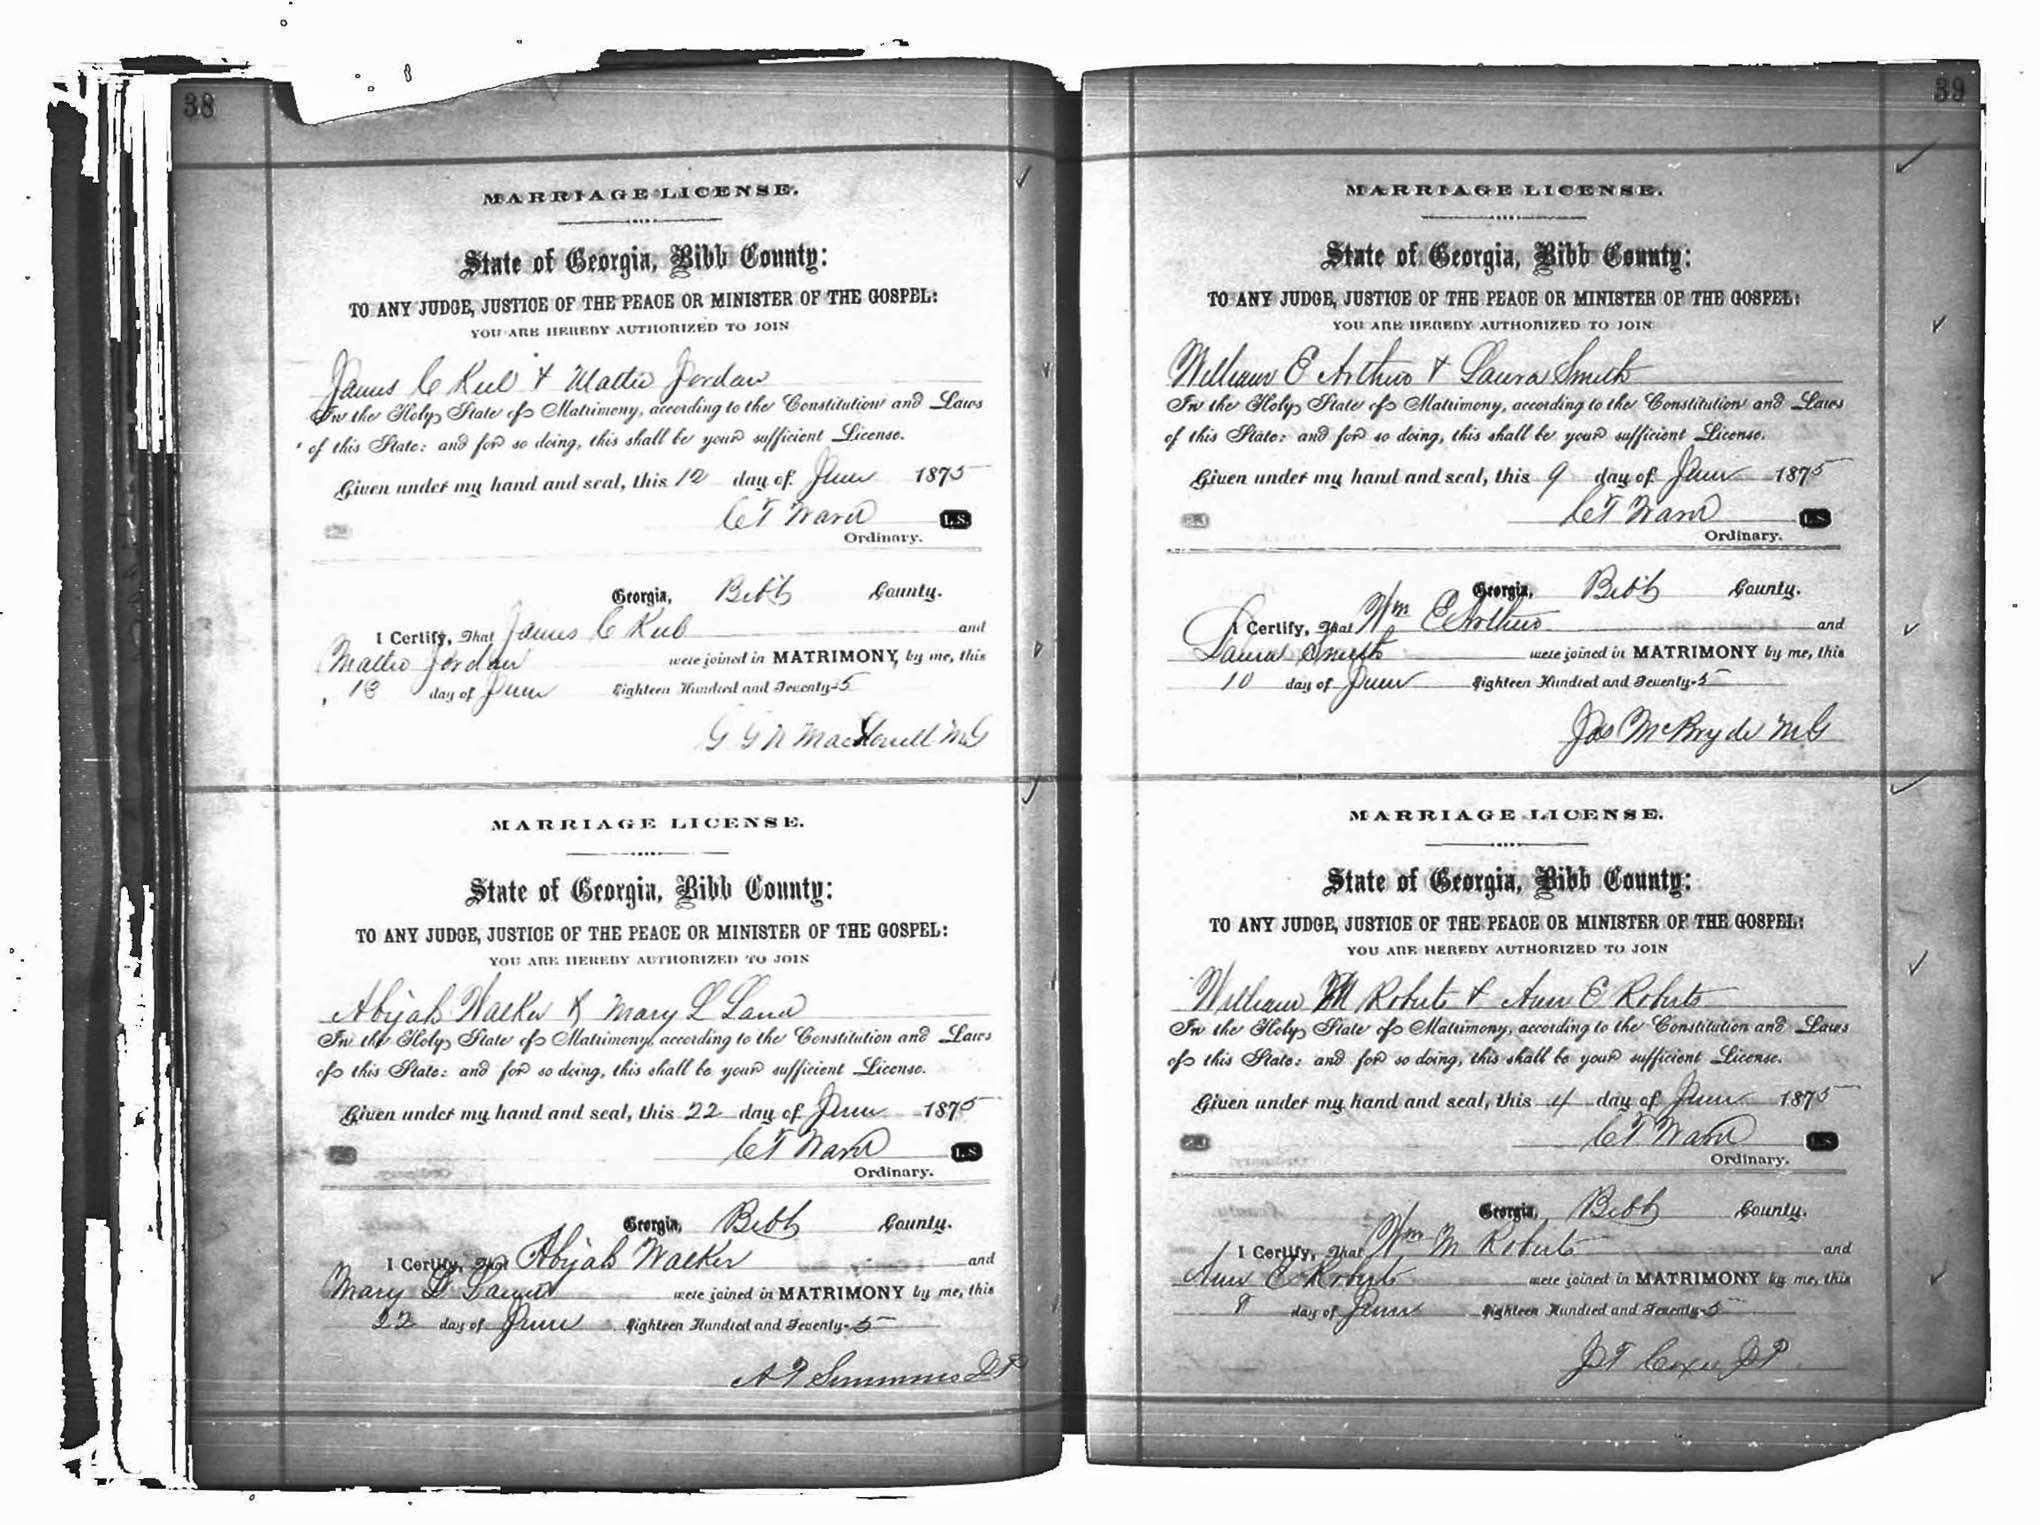 38
MARRIAGE LICENSE.
State of Georgia, Bibb County:
TO ANY JUDGE, JUSTICE OF THE PEACE OR MINISTER OF THE GOSPEL:
YOU ARE HEREBY AUTHORIZED TO JOIN
James C Keel & Mattie Jordan
In the Holy State of Matrimony, according to the Constitution and Laws
of this State: and for so doing, this shall be your sufficient License.
Given under my hand and seal, this 12 day of June 1875
C T Ward L.S.
Ordinary.
Georgia, Bibb County.
I Certify, That James C Keel and
Mattie Jordan were joined in MATRIMONY, by me, this
13 day of June Eighteen Hundred and Seventy-5
G G N MacDonell MG
MARRIAGE LICENSE.
State of Georgia, Bibb County:
TO ANY JUDGE, JUSTICE OF THE PEACE OR MINISTER OF THE GOSPEL:
YOU ARE HEREBY AUTHORIZED TO JOIN
Abijah Walker & Mary L Land
In the Holy State of Matrimony, according to the Constitution and Laws
of this State: and for so doing, this shall be your sufficient License.
Given under my hand and seal, this 22 day of June 1875
C T Ward L.S.
Ordinary.
Georgia, Bibb County.
I Certify, That Abijah Walker and
Mary L were joined in MATRIMONY by me, this
22 day of June Eighteen Hundred and Seventy-5
A T Simmons JP
39
MARRIAGE LICENSE.
State of Georgia, Bibb County:
TO ANY JUDGE, JUSTICE OF THE PEACE OR MINISTER OF THE GOSPEL:
YOU ARE HEREBY AUTHORIZED TO JOIN
William E Arthur & Laura Smith
In the Holy State of Matrimony, according to the Constitution and Laws
of this State: and for so doing, this shall be your sufficient License.
Given under my hand and seal, this 9 day of June 1875
C T Ward L.S.
Ordinary.
Georgia, Bibb County.
I Certify, That Wm E Arthur and
Laura Smith were joined in MATRIMONY by me, this
10 day of June Eighteen Hundred and Seventy-5
Jas McBryde MG
MARRIAGE LICENSE.
State of Georgia, Bibb County:
TO ANY JUDGE, JUSTICE OF THE PEACE OR MINISTER OF THE GOSPEL:
YOU ARE HEREBY AUTHORIZED TO JOIN
William M Roberts & Ann E Roberts
In the Holy State of Matrimony, according to the Constitution and Laws
of this State: and for so doing, this shall be your sufficient License.
Given under my hand and seal, this 4 day of June 1875
C T Ward L.S.
Ordinary.
Georgia, Bibb County.
I Certify, That Wm M Roberts and
Ann E Roberts were joined in MATRIMONY by me, this
8 day of June Eighteen Hundred and Seventy-5
J T Coxe JP